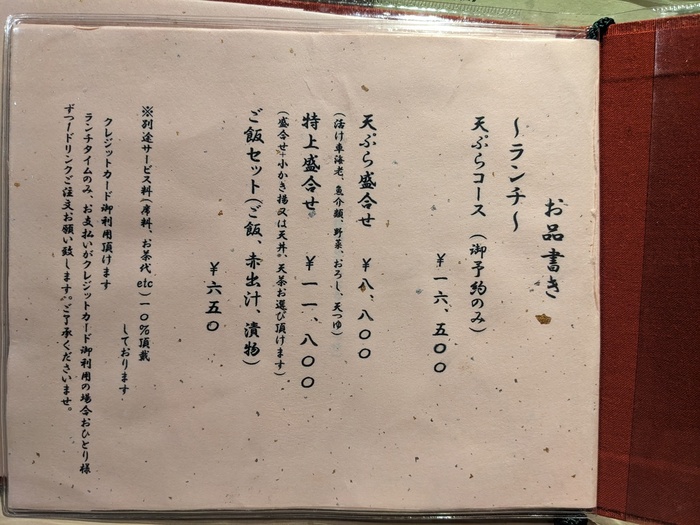 お品書き
～ランチ～
天ぷらコース（御予約のみ）
￥一六、五００
天ぷら盛合せ　￥八、八００
（活け車海老、魚介類、野菜、おろし、天つゆ）
特上盛合せ　￥一一、八００
（盛合せ＋小かき揚又は天丼、天茶お選び頂けます）
ご飯セット（ご飯、赤出汁、漬物）
￥六五０
※別途サービス料（席料、お茶代etc）一０％頂戴
しております
クレジットカード御利用頂けます
ランチタイムのみ、お支払いがクレジットカード御利用の場合おひとり様
ずつードリンクご注文お願い致します。ご了承くださいませ。